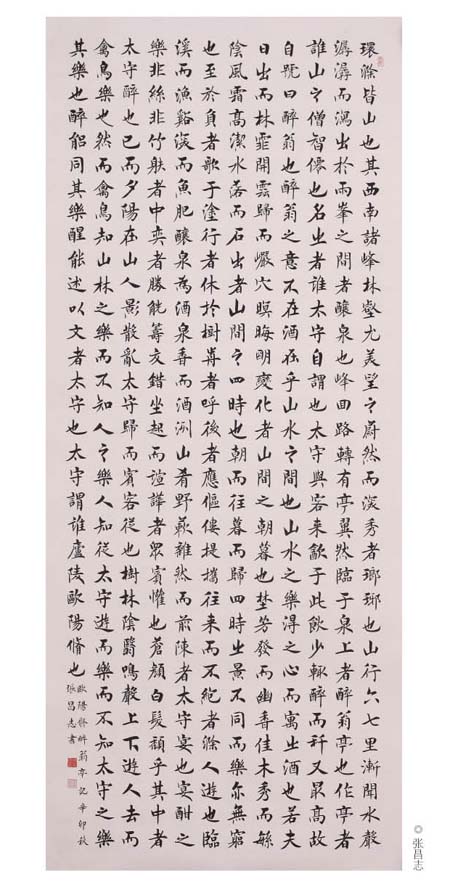 環滁皆山也其西南諸峰林壑尤美望之蔚然而深秀者瑯琊也山行六七里漸聞水聲
潺潺而瀉出於兩峯之間者釀泉也峰回路轉有亭翼然臨于泉上者醉翁亭也作亭者
誰山之僧智僊也名之者誰太守自謂也太守與客來飲于此飲少輒醉而秊又最高故
自號曰醉翁也醉翁之意不在酒在乎山水之間也山水之樂得之心而寓之酒也若夫
日出而林霏開雲歸而巖穴暝晦明變化者山間之朝暮也埜芳發而幽香佳木秀而緐
陰風霜高潔水落而石出者山間之四時也朝而往暮而歸四時之景不同而樂亦無窮
也至於負者歌于塗行者休於樹前者呼後者應傴僂提攜往來而不絕者滁人遊也臨
溪而漁谿深而魚肥釀泉為酒泉香而酒洌山肴野蔌雜然而前陳者太守宴也宴酣之
樂非絲非竹射者中奕者勝觥籌交錯坐起而諠譁者眾賓懽也蒼顏白髮頹乎其中者
太守醉也已而夕陽在山人影散亂太守歸而賓客從也樹林陰翳鳴聲上下遊人去而
禽鳥樂也然而禽鳥知山林之樂而不知人之樂人知從太守遊而樂而不知太守之樂
其樂也醉能同其樂醒能述以文者太守也太守謂誰廬陵歐陽脩也
歐陽脩醉翁亭記辛卯秋
張昌志書
◎ 张昌志